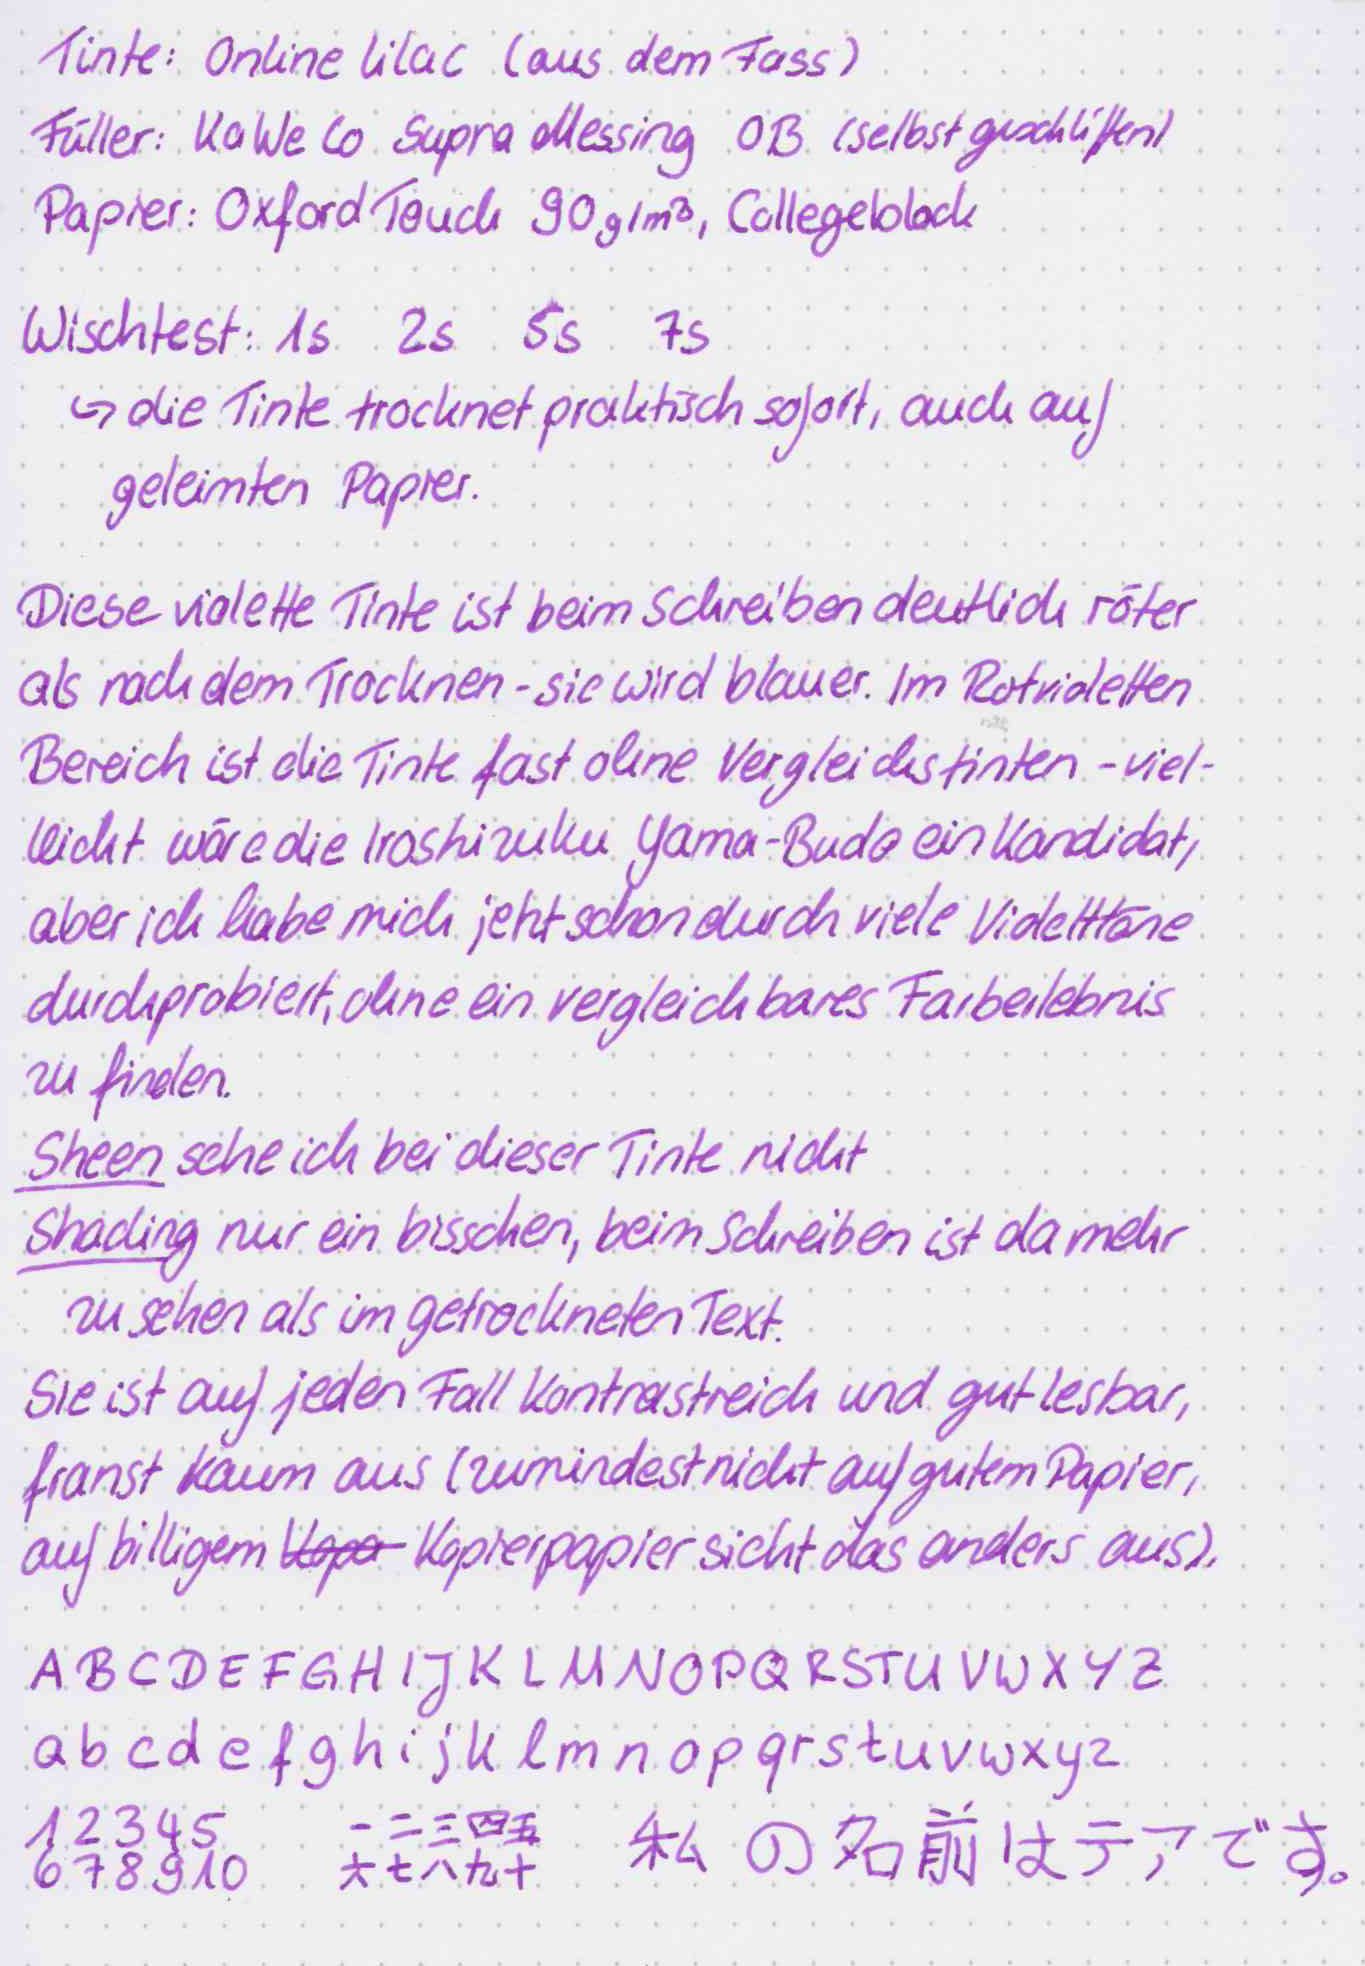 Tinte: Online lilac (aus dem Fass)
Füller: KaWeCo Supra Messing OB (selbst geschliffen)
Papier: Oxford Touch 90g/m², Collegeblock
Wischtest: 1s 2s 5s 7s
↪ die Tinte trocknet praktisch sofort, auch auf
geleimten Papier.
Diese violette Tinte ist beim Schreiben deutlich röter
als nach dem Trocknen - sie wird blauer. Im Rotvioletten
Bereich ist die Tinte fast ohne Vergleichstinten - viel-
leicht wäre die Iroshizuku Yama-Budo ein Kandidat,
aber ich habe mich jetzt schon durch viele Violetttöne
durchprobiert, ohne ein vergleichbares Farberlebnis
zu finden.
Sheen sehe ich bei dieser Tinte nicht
Shading nur ein bisschen, beim Schreiben ist da mehr
zu sehen als im getrockneten Text.
Sie ist auf jeden Fall kontrastreich und gut lesbar,
franst kaum aus (zumindest nicht auf gutem Papier,
auf billigem Kopa Kopierpapier sieht das anders aus).
A B C D E F G H I J K L M N O P Q R S T U V W X Y Z
a b c d e f g h i j k l m n o p q r s t u v w x y z
1 2 3 4 5 一 二 三 四 五 私の名前はテアです。
6 7 8 9 10 六 七 八 九 十